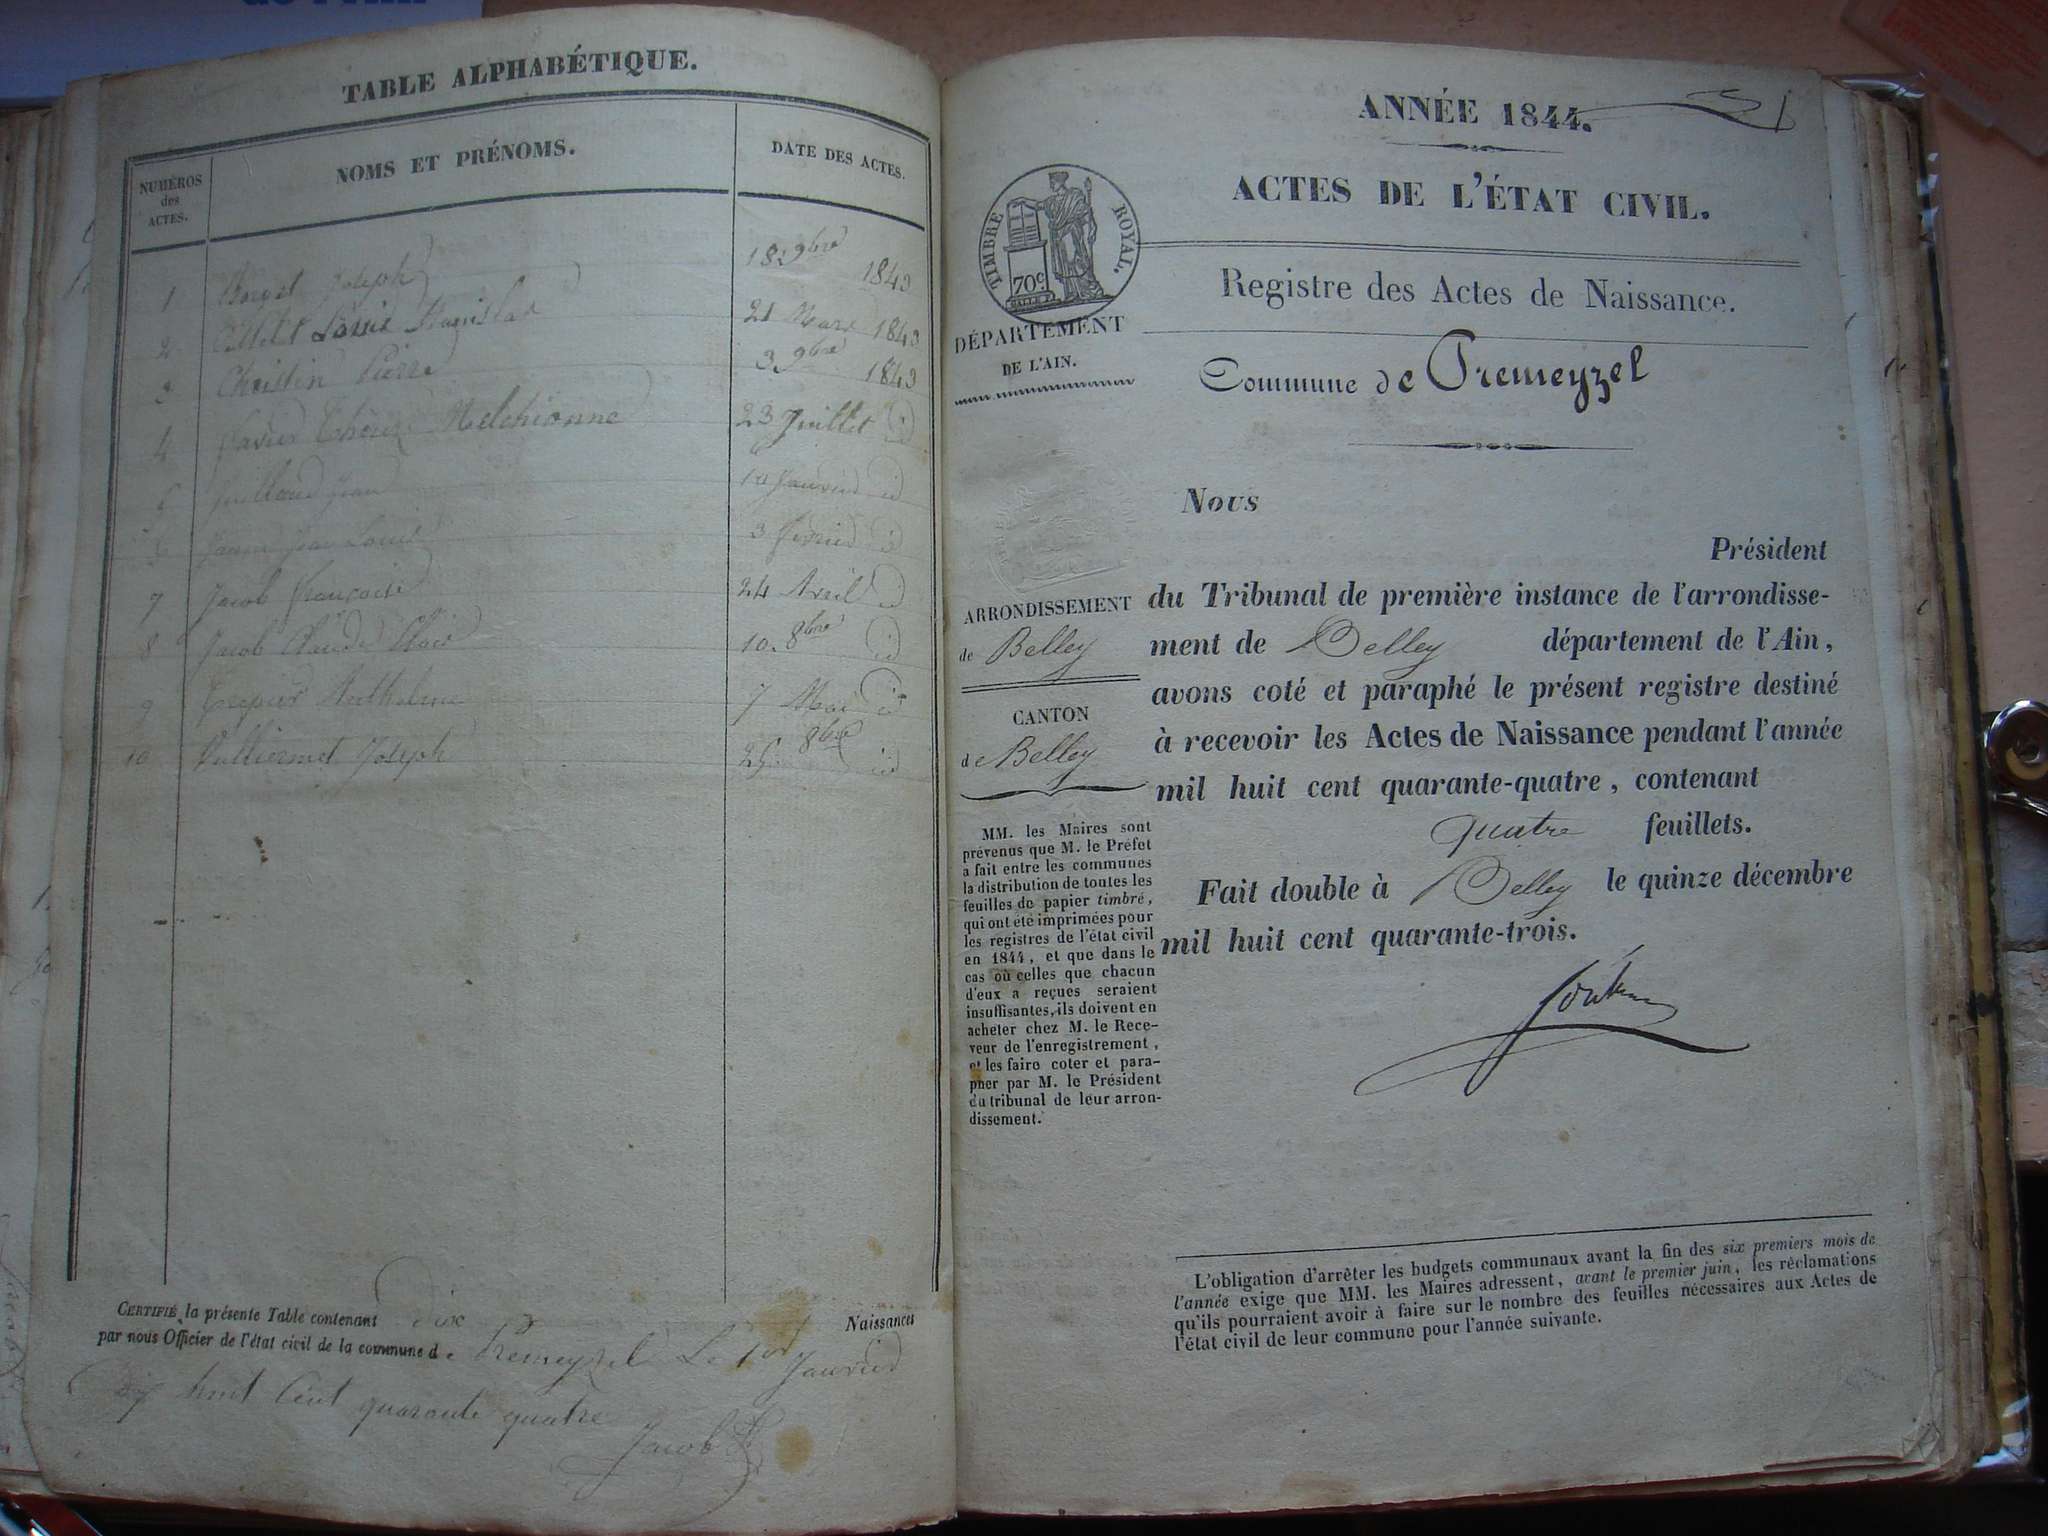 TABLE ALPHABÉTIQUE.
NUMÉROS des ACTES.
NOMS ET PRÉNOMS.
DATE DES ACTES.
1 Joseph 18. 9bre 1843
2 Louis Stanislas 21 Mars 1843
3 Christin Pierre 3 9bre 1843
4 Melchionne 23 Juillet id
5 Guillaud Jean 10 Janvier id
6 Jean Louis 3 Février id
7 Jacob Françoise 24 Avril id
8 Jacob Claude 10. 8bre id
9 Anthelme 7 Mai id
10 Vulliermet Joseph 25. 8bre id
CERTIFIÉ la présente Table contenant dix Naissances
par nous Officier de l'état civil de la commune de Premeyzel Le 1er Janvier
huit Cent quarante quatre
Jacob
ANNÉE 1844.
ACTES DE L'ÉTAT CIVIL.
TIMBRE ROYAL.
70c
Registre des Actes de Naissance.
DÉPARTEMENT
DE L'AIN.
Commune de Premeyzel
Nous
Président
du Tribunal de première instance de l'arrondisse-
ment de Belley département de l'Ain,
avons coté et paraphé le présent registre destiné
à recevoir les Actes de Naissance pendant l'année
mil huit cent quarante-quatre, contenant
quatre feuillets.
Fait double à Belley le quinze décembre
mil huit cent quarante-trois.
ARRONDISSEMENT
de Belley
CANTON
de Belley
MM. les Maires sont
prévenus que M. le Préfet
a fait entre les communes
la distribution de toutes les
feuilles de papier timbré,
qui ont été imprimées pour
les registres de l'état civil
en 1844, et que dans le
cas où celles que chacun
d'eux a reçues seraient
insuffisantes, ils doivent en
acheter chez M. le Rece-
veur de l'enregistrement,
et les faire coter et para-
pher par M. le Président
du tribunal de leur arron-
dissement.
L'obligation d'arrêter les budgets communaux avant la fin des six premiers mois de
l'année exige que MM. les Maires adressent, avant le premier juin, les réclamations
qu'ils pourraient avoir à faire sur le nombre des feuilles nécessaires aux Actes de
l'état civil de leur commune pour l'année suivante.